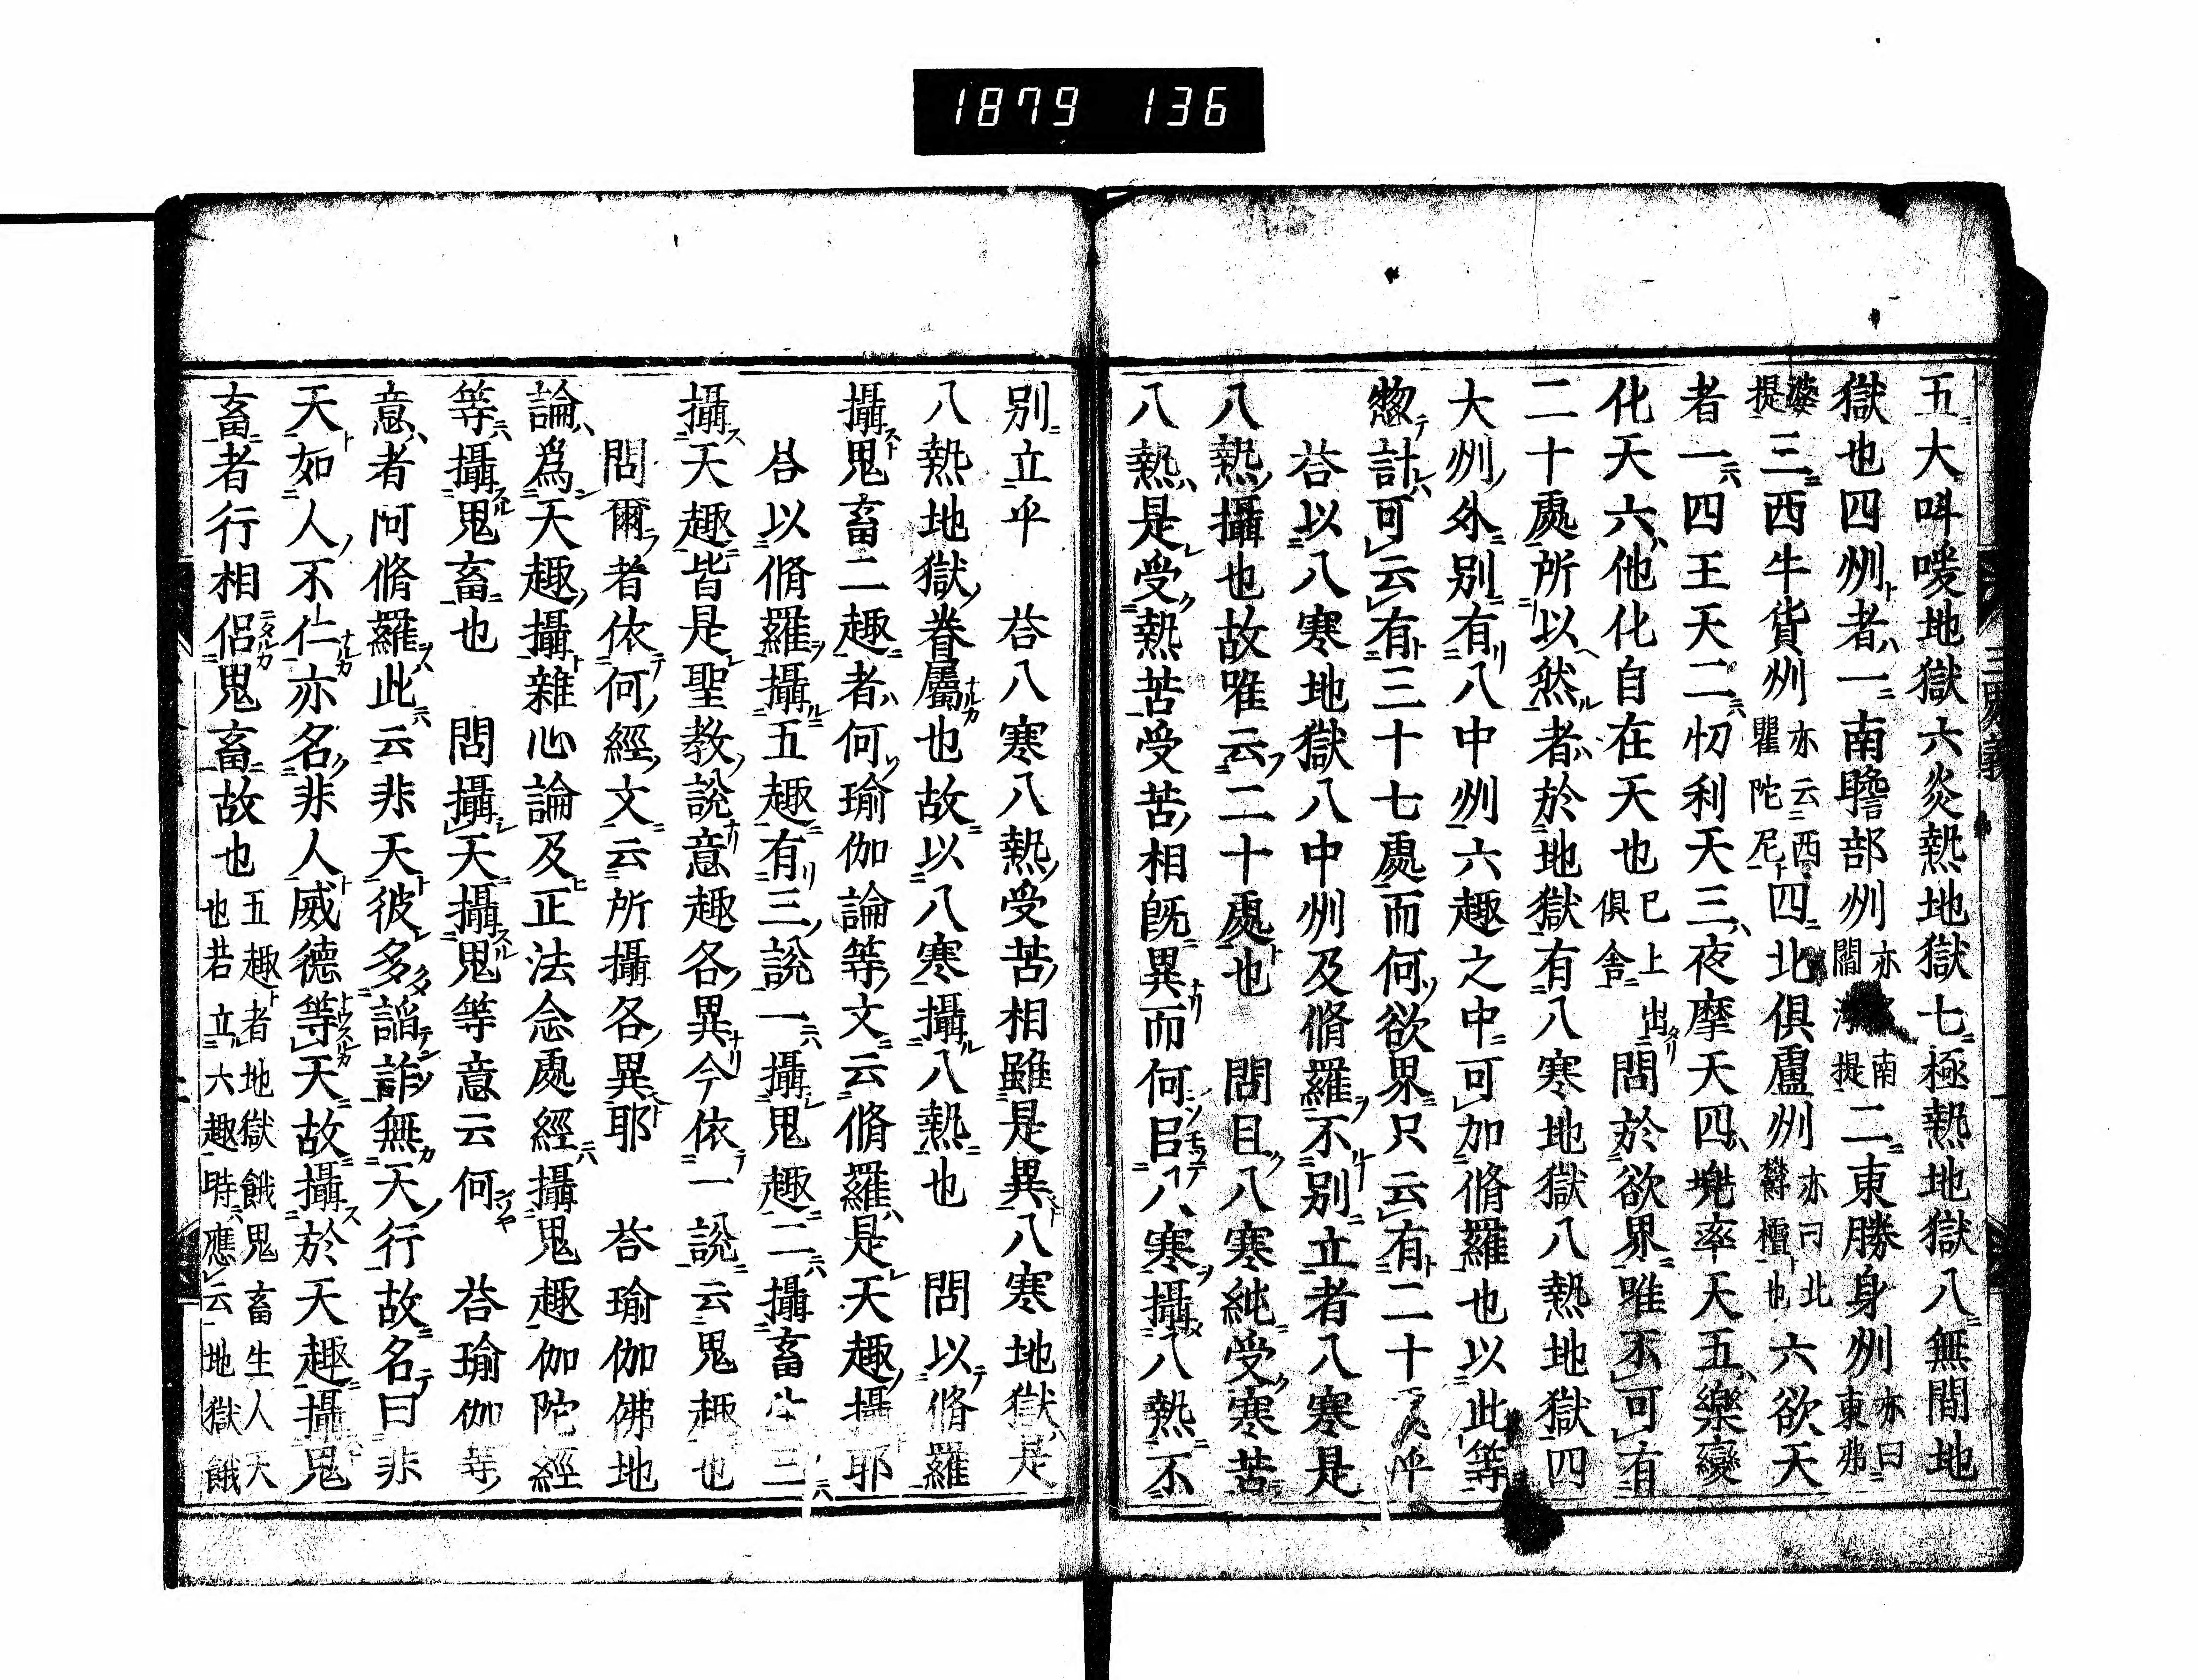 1879 136
五大呌喚地獄六炎熱地獄七極熱地獄八無間地
獄也四州者一南贍部州亦南閻浮提二東勝身州亦曰東弗
婆提三西牛貨州亦云西瞿陀尼四北俱盧州亦曰北欝檀也六欲天
者一四王天二忉利天三夜摩天四兠率天五樂變
化天六他化自在天也已上俱舍出問於欲界唯不可有
二十處所以然者於地獄有八寒地獄八熱地獄四
大州外別有八中州六趣之中可加脩羅也以此等
惣計可云有三十七處而何欲界只云有二十乎
荅以八寒地獄八中州及脩羅不別立者八寒是
八熱攝也故唯云二十處也 問且八寒純受寒苦
八熱是受熱苦受苦相既異而何㠯八寒攝八熱不
別立乎 荅八寒八熱受苦相雖是異八寒地獄是
八熱地獄眷屬也故以八寒攝八熱也 問以脩羅
攝鬼畜二趣者何瑜伽論等文云脩羅是天趣攝耶
荅以脩羅攝五趣有三說一攝鬼趣二攝畜生三
攝天趣皆是聖教說意趣各異今依一說云鬼趣也
問爾者依何經文云所攝各異耶 荅瑜伽佛地
論爲天趣攝雜心論及正法念處經攝鬼趣伽陀經
等攝鬼畜也 問攝天攝鬼等意云何 荅瑜伽等
意者阿脩羅此云非天彼多諂詐無天行故名曰非
天如人不仁亦名非人威德等天故攝於天趣攝鬼
畜者行相侶鬼畜故也五趣者地獄餓鬼畜生人天也若立六趣時應云地獄餓